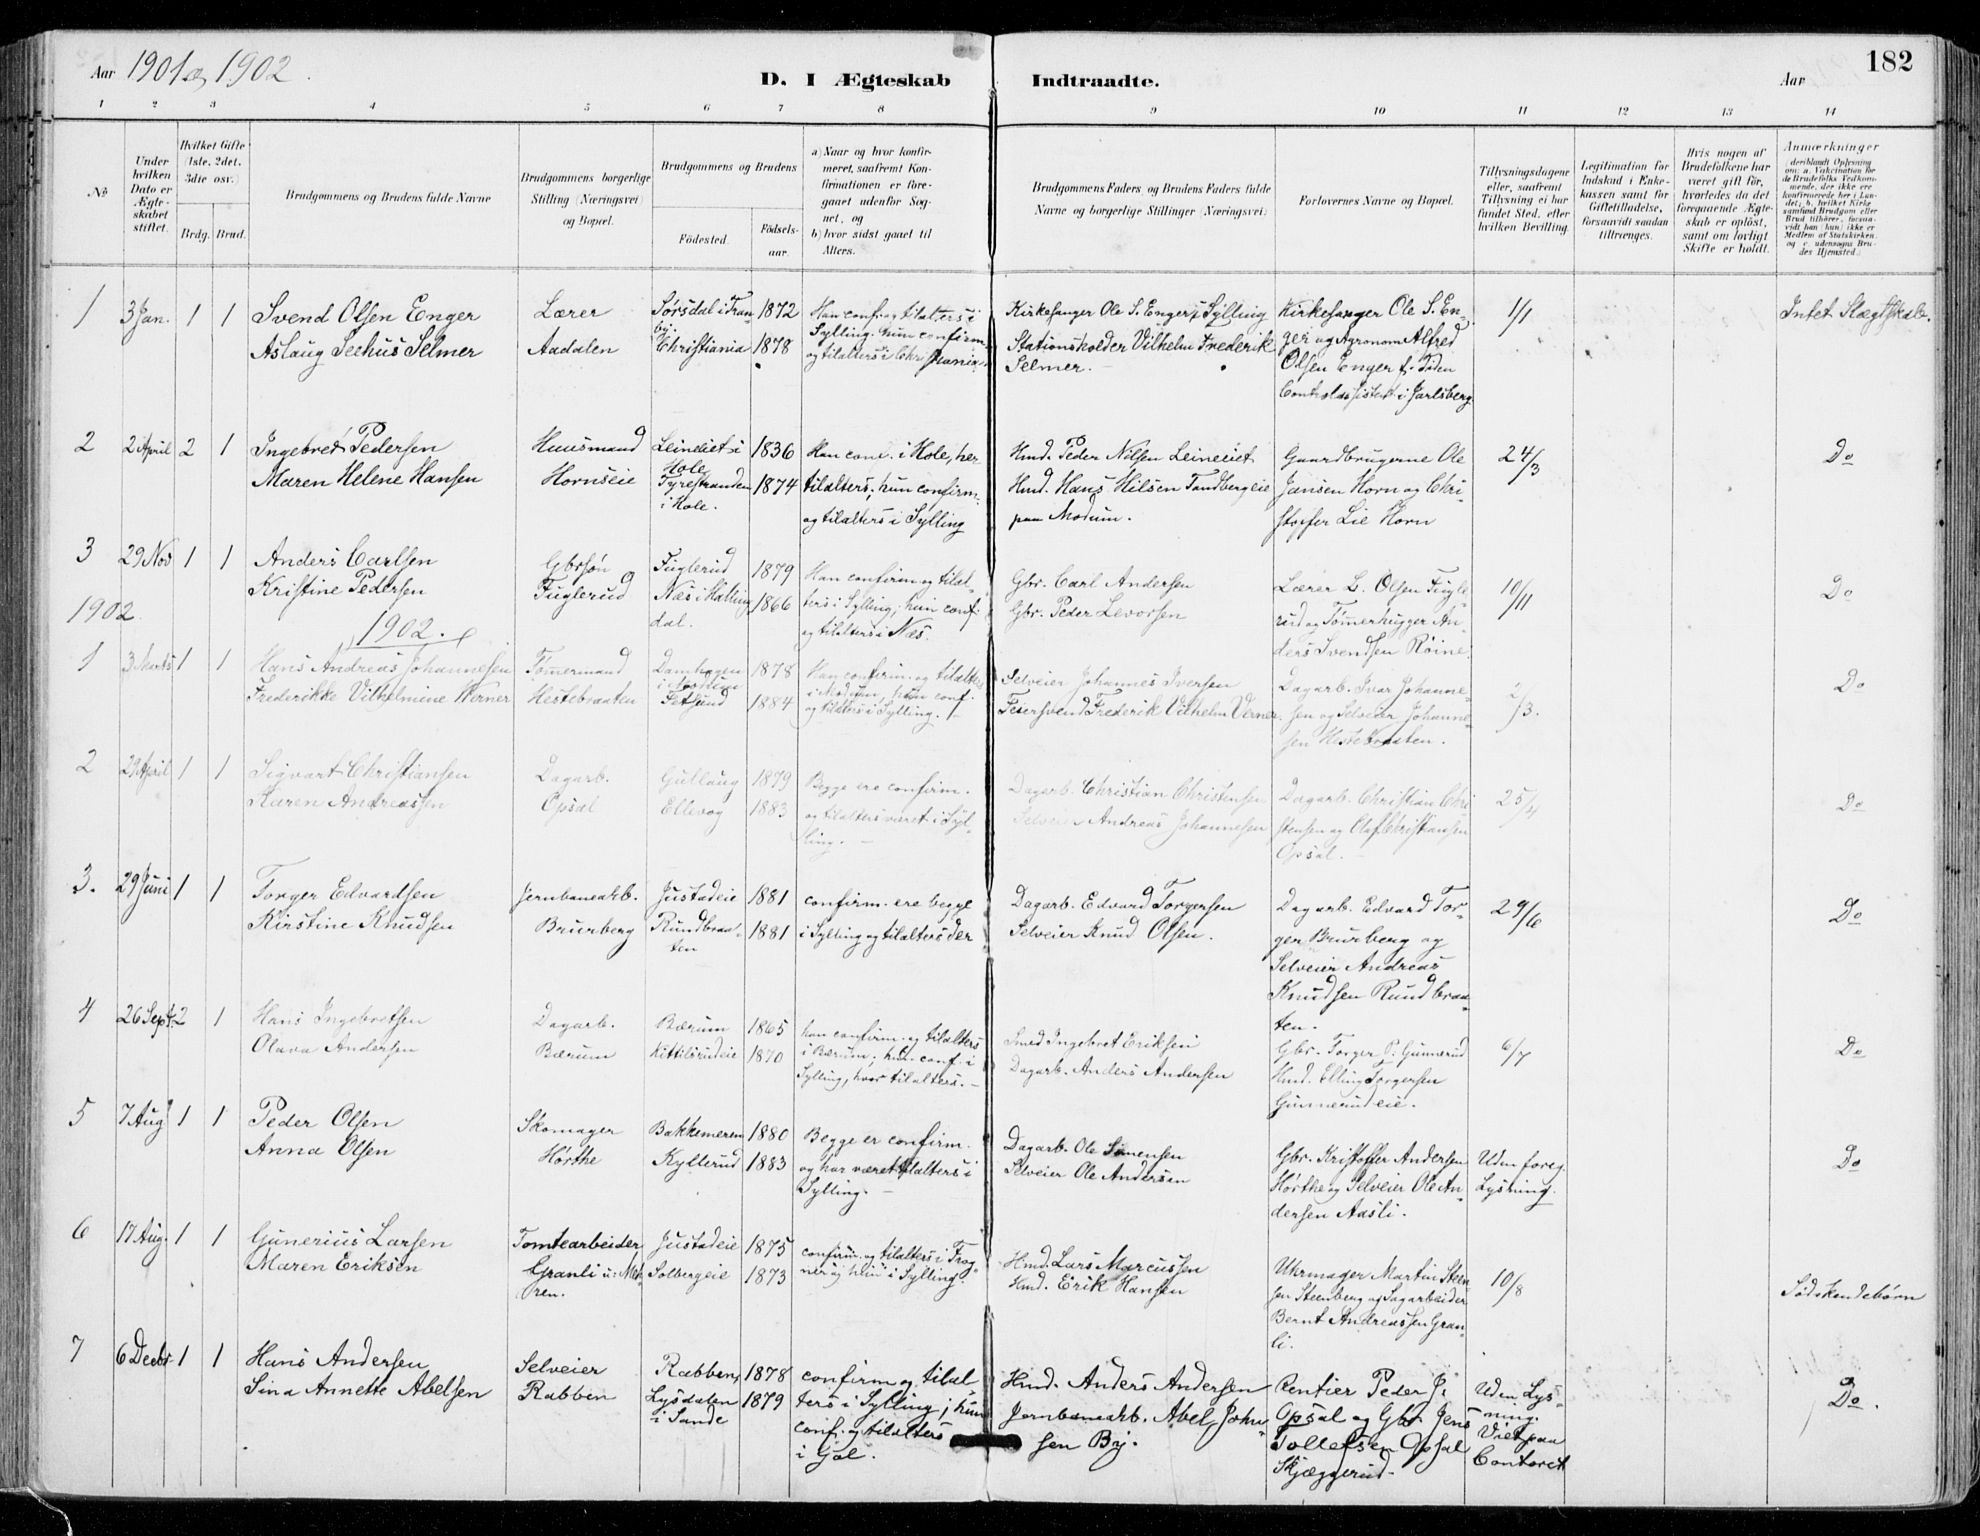 Aar 1901 og 1902.
D. I Ægteskab Indtraadte.
Aar
182
1 2 3 4 5 6 7 8 9 10 11 12 13 14
No
Under hvilken Dato er Ægteskabet stiftet.
Hvilket Gifte (1ste, 2det, 3die osv.)
Brdg. Brud.
Brudgommens og Brudens fulde Navne
Brudgommens borgerlige Stilling (Næringsvei) og Bopæl.
Brudgommens og Brudens
Fødested.
Fødselsaar.
a) Naar og hvor konfirmeret, saafremt Konfirmationen er foregaaet udenfor Sognet, og
b) hvor sidst gaaet til Alters.
Brudgommens Faders og Brudens Faders fulde Navne og borgerlige Stillinger (Næringsvei)
Forlovernes Navne og Bopæl.
Tillysningsdagene eller, saafremt Tillysning ei har fundet Sted, efter hvilken Bevilling.
Legitimation for Indskud i Enkekassen samt for Giftetilladelse, forsaavidt saadan tiltrænges.
Hvis nogen af Brudefolkene har været gift før, hvorledes da det foregaaende Ægteskab er opløst, samt om lovligt Skifte er holdt.
Anmærkninger (deriblandt Oplysning om: a. Vakcination for de Brudefolks Vedkommende, der ikke ere konfirmerede her i Landet; b. hvilket Kirkesamfund Brudgom eller Brud tilhører, forsaavidt han (hun) ikke er Medlem af Statskirken, og c. udensogns Brudes Hjemsted.)
1 3 Jan. 1 1
Svend Olsen Enger
Aslaug Seehus Selmer
Lærer
Aadalen
Sørsdal i Tranby.
Christiania
1872
1878
Han conf. og tilalters i
Sylling. hun confirm.
og tilalters i Christiania.
Kirkesanger Ole S. Enger, Sylling
Stationsholder Vilhelm Frederik
Selmer.
Kirkesanger Ole S. En-
ger og Agronom Alfred
Olsen Enger f. Tiden
Controlassistent i Jarlsberg
1/1
Intet Slægtskab.
2 2 April 2 1
Ingebret Pedersen
Maren Helene Hansen
Huusmand
Hornseie
Leineeiet i
Hole
Tyrestranden
i Hole.
1836
1874
Han conf. i Hole, her
tilalters; hun confirm.
og tilalters i Sylling
Hmd. Peder Nilsen Leineeiet
Hmd. Hans Nilsen Tandbergeie
paa Modum.
Gaardbrugerne Ole
Jansen Horn og Chri-
stoffer Lie Horn
24/3
Do
3 29 Nov 1 1
Anders Carlsen
Kristine Pedersen
Gbrsøn
Fuglerud
Fuglerud
Næs i Halling
dal.
1879
1866
Han confirm og tilal-
ters i Sylling; hun conf.
og tilalters i Næs.
Gbr. Carl Andersen
Gbr. Peder Levorsen
Lærer L. Olsen Fugle-
rud og Tømerhugger An-
ders Svendsen Røine.
10/11
Do
1902.
1902.
1 3 Marts 1 1
Hans Andreas Johannesen
Frederikke Vilhelmine Werner
Tømermand
Hestebraaten
Damhagen
i Modum
Fetsund
1878
1884
Han confirm. og tilalters
i Modum, hun conf.
og tilalters i Sylling.
Selveier Johannes Iversen
Feiersvend Frederik Vilhelm Verner
Dagarb. Ivar Johanne-
sen og Selveier Johanne-
sen Hestebraaten.
2/3.
Do
2 29 April 1 1
Sigvart Christiansen
Karen Andreassen
Dagarb.
Opsal
Gullaug
Ellevog
1879
1883
Begge ere confirm.
og tilalters været i Syl-
ling.
Dagarb. Christian Christensen
Selveier Andreas Johannesen
Dagarb. Christian Chri-
stensen og Olaf Christiansen
Opsal.
25/4
Do
3. 29 Juni 1 1
Torger Edvardsen
Kirstine Knudsen
Jernbanearb.
Bruurberg
Justadeie
Rundbraa-
ten
1881
1881
confirm. ere begge
i Sylling og tilalters der
Dagarb. Edvard Torgersen
Selveier Knud Olsen.
Dagarb. Edvard Tor-
ger Bruurberg og
Selveier Andreas
Knudsen Rundbraa-
ten.
29/6
Do
4 26 Sept. 2 1
Hans Ingebretsen
Olava Andersen
Dagarb.
Bærum
Bærum
Kittilsrudeie
1865
1870
han confirm. og tilalters
i Bærum; hun conf. i
Sylling, hvor tilalters.
Smed Ingebret Eriksen
Dagarb. Anders Andersen
Gbr. Torger P. Gunnerud
Hmd. Elling Torgersen
Gunnerudeie.
6/7
Do
5 7 Aug 1 1
Peder Olsen
Anna Olsen
Skomager
Hørthe
Bakkemeren
Kyllerud
1880
1883
Begge er confirm.
og har været tilalters i
Sylling.
Dagarb. Ole Simensen
Selveier Ole Andersen
Gbr. Kristoffer Andersen
Hørthe og Selveier Ole An-
dersen Aasli.
Uden foreg.
Lysning.
Do
6 17 Aug. 1 1
Gunerius Larsen
Maren Eriksen
Tomtearbeider
Granli u: Me-
ren.
Justadeie
Solbergeie
1875
1873
confirm. og tilalters i Frog-
ner; hun i Sylling.
Hmd. Lars Marcussen
Hmd. Erik Hansen
Uhrmager Martin Steen-
sen Steenberg og Sagarbeider
Bernt Andreassen Gran-
li.
10/8
Sødskendebørn
7 6 Decbr. 1 1
Hans Andersen
Sina Annette Abelsen
Selveier
Rabben
Rabben,
Lysdalen
i Sande
1878
1879
confirm og tilal
ters i Sylling; hun
conf. og tilalters
i Gol.
Hmd. Anders Andersen
Jernbanearb. Abel John-
sen By.
Rentier Peder J.
Opsal og Gbr Jens
Tollefsen Opsal
Skjæggerud.
Uden Lys-
ning.
Viet paa
Contoret
Do.